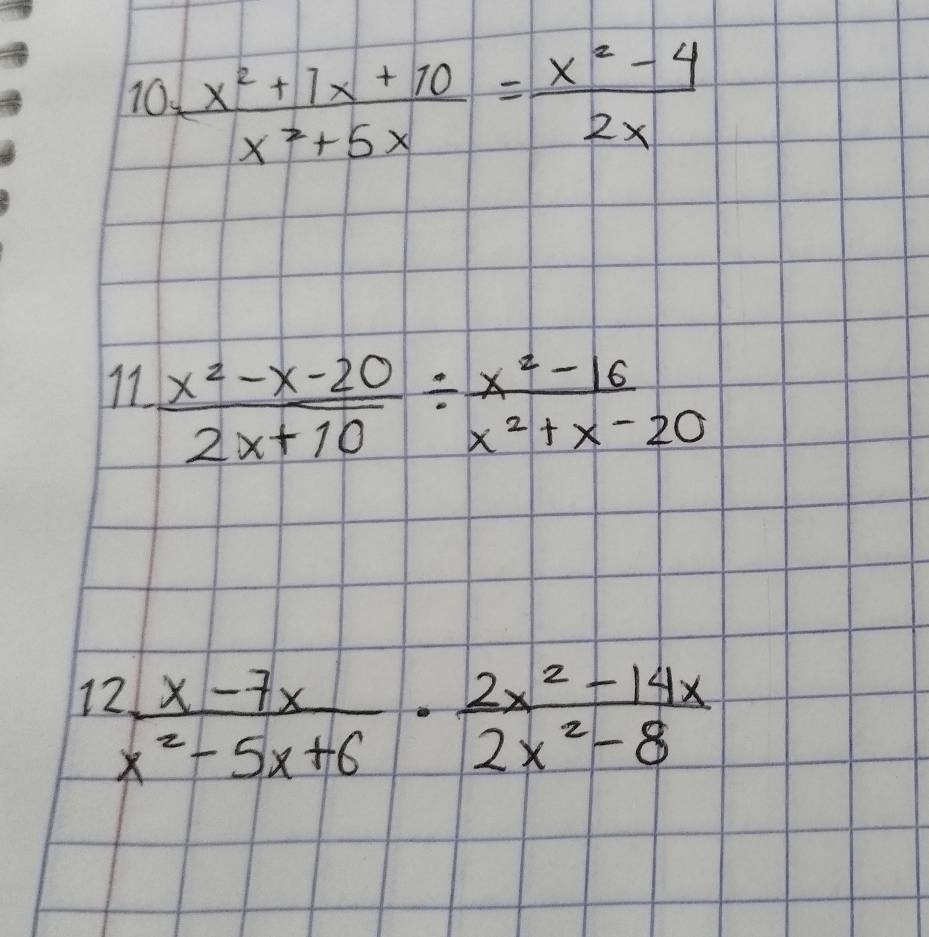 10. x² + 7x + 10 / x² + 5x = x² - 4 / 2x
11. x² - x - 20 / 2x + 10 ÷ x² - 16 / x² + x - 20
12. x - 7x / x² - 5x + 6 · 2x² - 14x / 2x² - 8